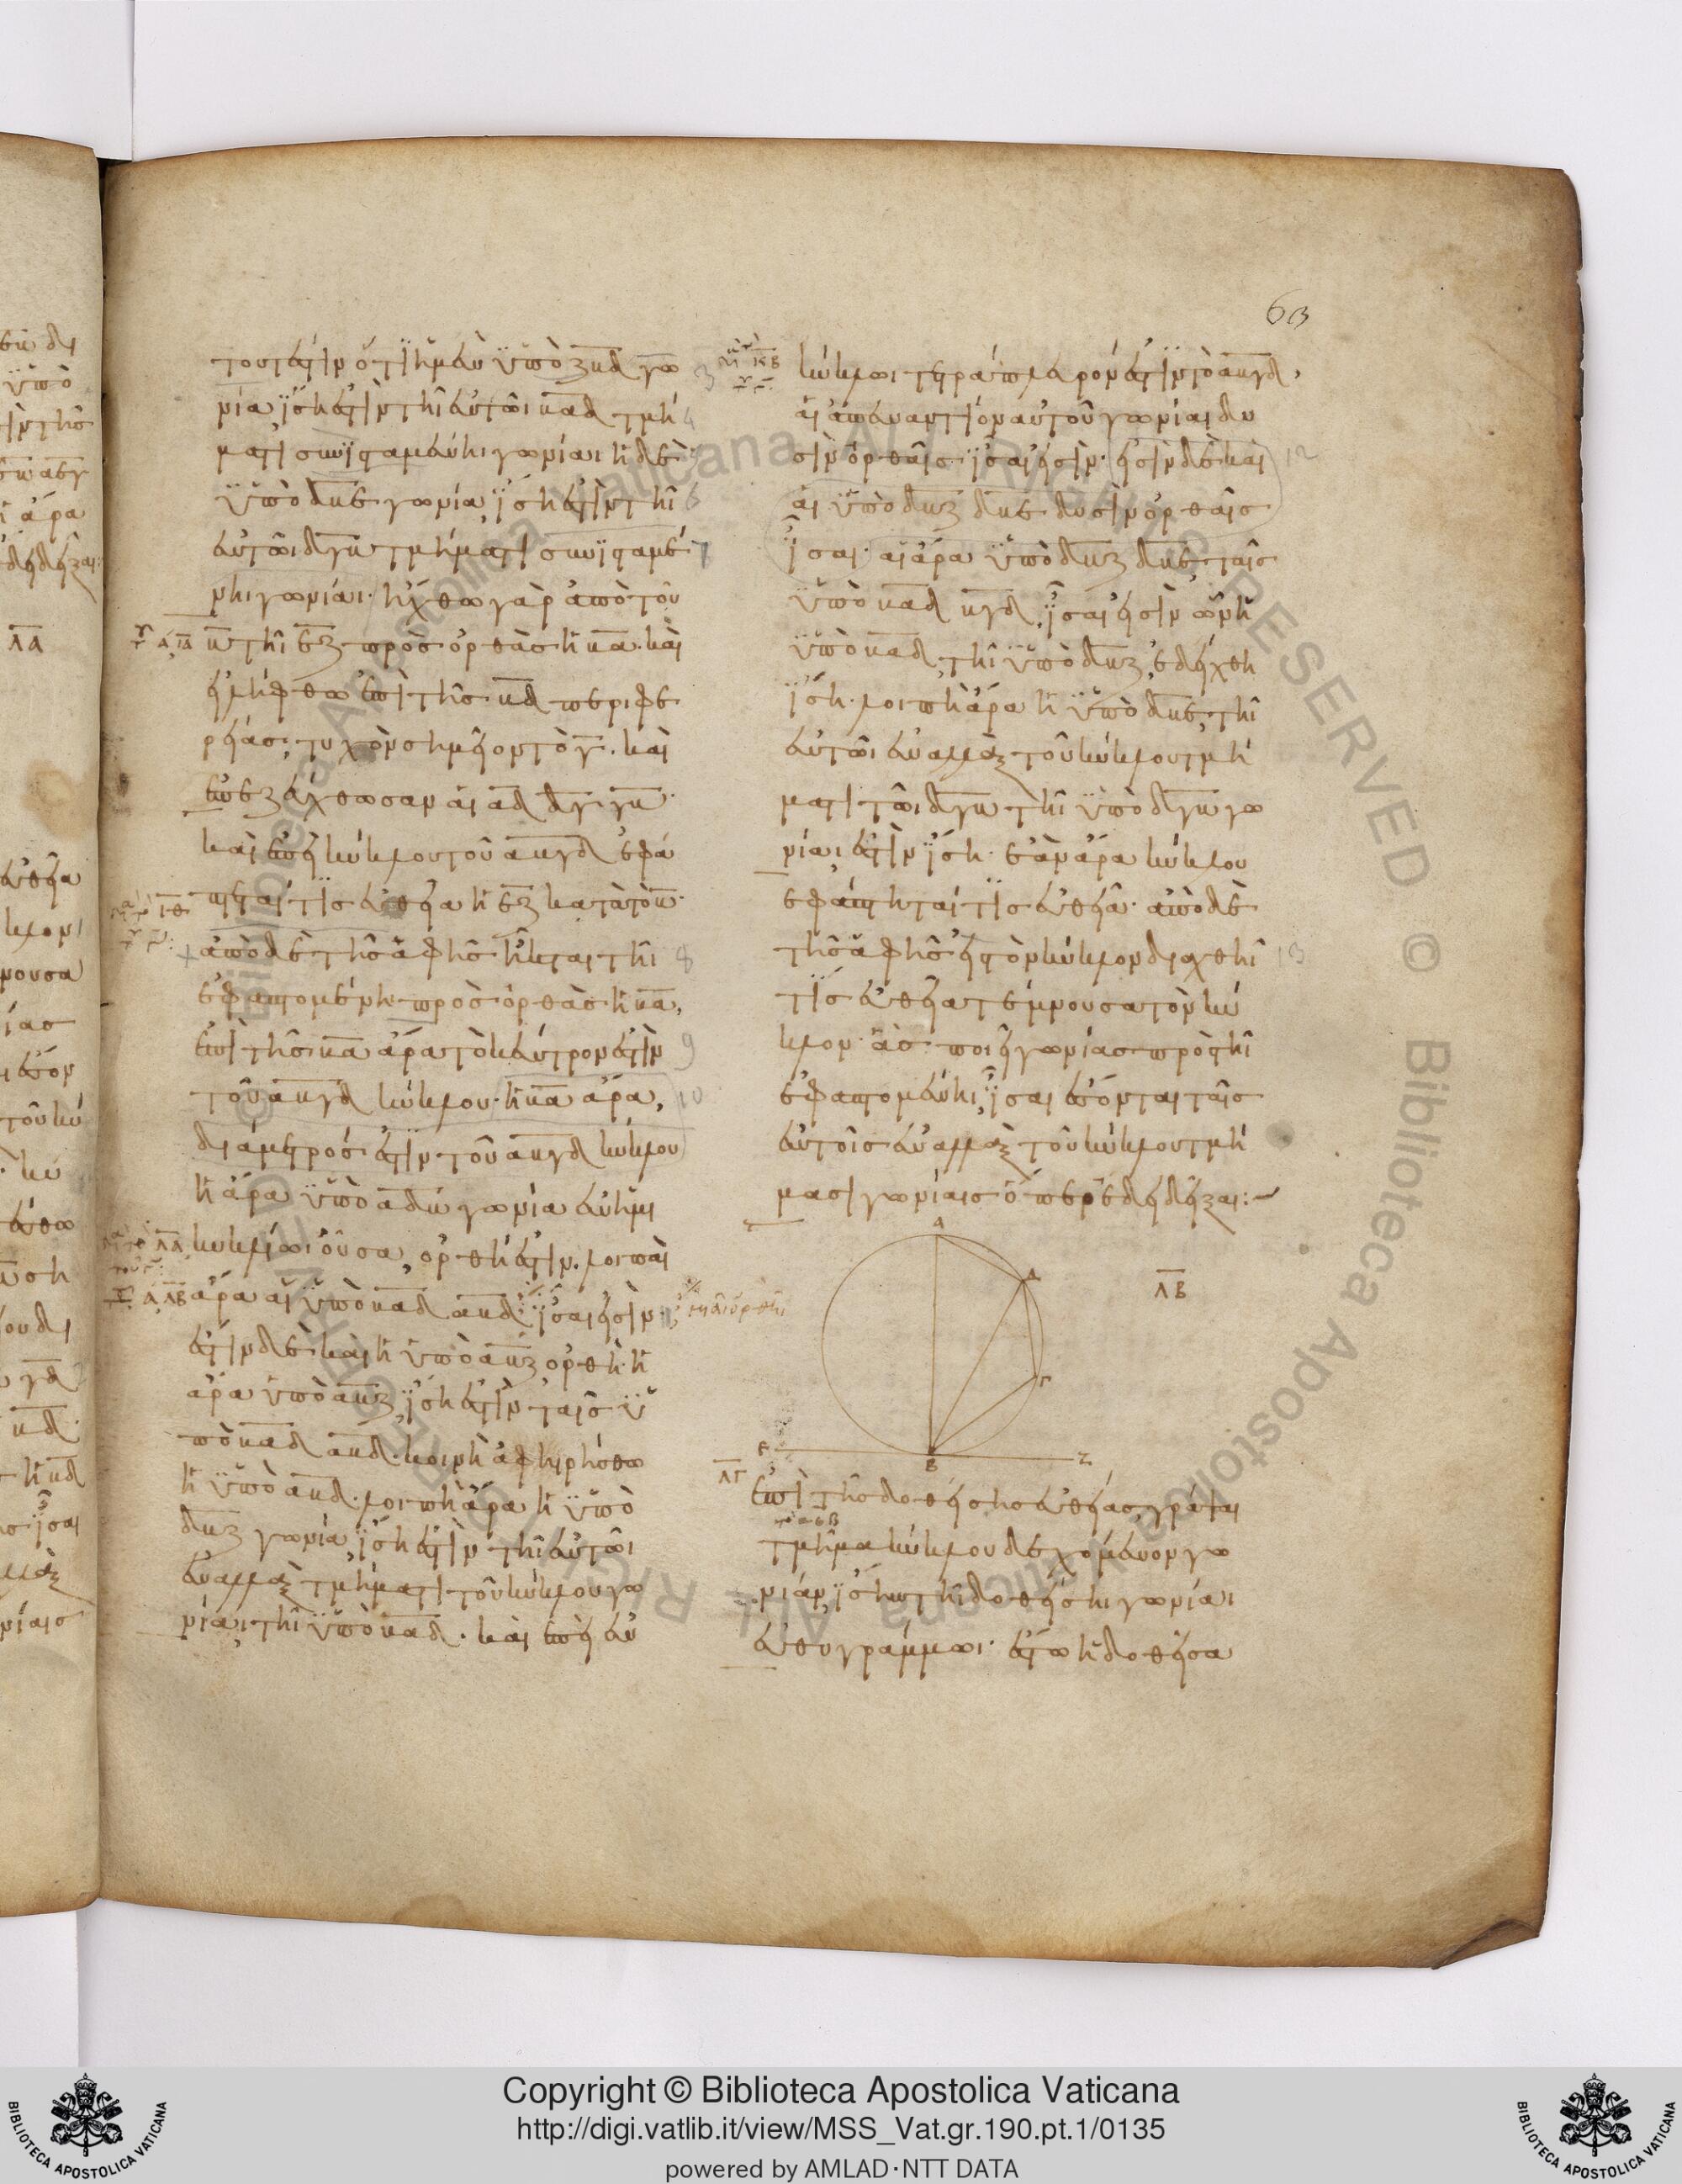 τουτέστιν ὅτι ἡ μὲν ὑπὸ ζβδ γω
νία ἴση ἐστὶν τῆι ἐν τῶι βαδ τμή
ματι συνισταμένηι γωνίαι ἡ δὲ
ὑπὸ δβε γωνία ἴση ἐστὶν τῆι
ἐν τῶι δγβ τμήματι συνισταμέ
νηι γωνίαι· ἤχθω γὰρ ἀπὸ τοῦ
β τῆι εζ πρὸς ὀρθὰς ἡ βα· καὶ
εἰλήφθω ἐπὶ τῆς βδ περιφε
ρείας τυχὸν σημεῖον τὸ γ· καὶ
ἐπεζεύχθωσαν αἱ αδ δγ γβ·
καὶ ἐπεὶ κύκλου τοῦ αβγδ ἐφά
πτεταί τις εὐθεῖα ἡ εζ κατὰ τὸ β·
ἀπὸ δὲ τῆς ἁφῆς ἦκται τῆι
ἐφαπτομένηι πρὸς ὀρθὰς ἡ βα,
ἐπὶ τῆς βα ἄρα τὸ κέντρον ἐστὶν
τοῦ αβγδ κύκλου· ἡ βα ἄρα,
διάμετρός ἐστιν τοῦ αβγδ κύκλου
ἡ ἄρα ὑπὸ αδβ γωνία ἐν ἡμι
κυκλίωι οὖσα, ὀρθή ἐστιν· λοιπαὶ
ἄρα αἱ ὑπὸ βαδ αβδ ἴσαι εἰσὶν·
ἐστὶν δὲ καὶ ἡ ὑπὸ αβζ ὀρθή· ἡ
ἄρα ὑπὸ αβζ ἴση ἐστὶν ταῖς ὑ
πὸ βαδ αβδ· κοινὴ ἀφηιρήσθω
ἡ ὑπὸ αβδ· λοιπὴ ἄρα ἡ ὑπὸ
δβζ γωνία ἴση ἐστὶν τῆι ἐν τῶι
ἐναλλὰξ τμήματι τοῦ κύκλου γω
νίαι τῆι ὑπὸ βαδ· καὶ ἐπεὶ ἐν
μιᾶι ὀρθῆι
63
κύκλωι τετράπλευρόν ἐστιν τὸ αβγδ,
αἱ ἀπεναντίον αὐτοῦ γωνίαι δυ
σὶν ὀρθαῖς ἴσαι εἰσὶν· εἰσὶν δὲ καὶ
αἱ ὑπὸ δβζ δβε δυσὶν ὀρθαῖς
ἴσαι· αἱ ἄρα ὑπὸ δβζ δβε ταῖς
ὑπὸ βαδ βγδ ἴσαι εἰσὶν ὧν ἡ
ὑπὸ βαδ τῆι ὑπὸ δβζ ἐδείχθη
ἴση· λοιπὴ ἄρα ἡ ὑπὸ δβε τῆι
ἐν τῶι ἐναλλὰξ τοῦ κύκλου τμή
ματι τῶι δγβ τῆι ὑπὸ δγβ γω
νίαι ἐστὶν ἴση· ἐὰν ἄρα κύκλου
ἐφάπτηταί τις εὐθεῖα· ἀπὸ δὲ
τῆς ἁφῆς εἰς τὸν κύκλον διαχθῆι
τίς εὐθεῖα τέμνουσα τὸν κύ
κλον· ἃς ποιεῖ γωνίας πρὸς τῆι
ἐφαπτομένηι, ἴσαι ἔσονται ταῖς
ἐν τοῖς ἐναλλὰξ τοῦ κύκλου τμή
μασι γωνίαις ὅπερ ἔδει δεῖξαι:~
Α
Δ
Γ
Β
Ε
Ζ
ΛΒ
ΛΓ
ἐπὶ τῆς δοθείσης εὐθείας γράψαι
τμῆμα κύκλου δεχόμενον γω
νίαν ἴσην τῆι δοθείσηι γωνίαι
εὐθυγράμμωι· ἔστω ἡ δοθεῖσα
Copyright © Biblioteca Apostolica Vaticana
http://digi.vatlib.it/view/MSS_Vat.gr.190.pt.1/0135
powered by AMLAD·NTT DATA
BIBLIOTECA APOSTOLICA VATICANA
BIBLIOTECA APOSTOLICA VATICANA